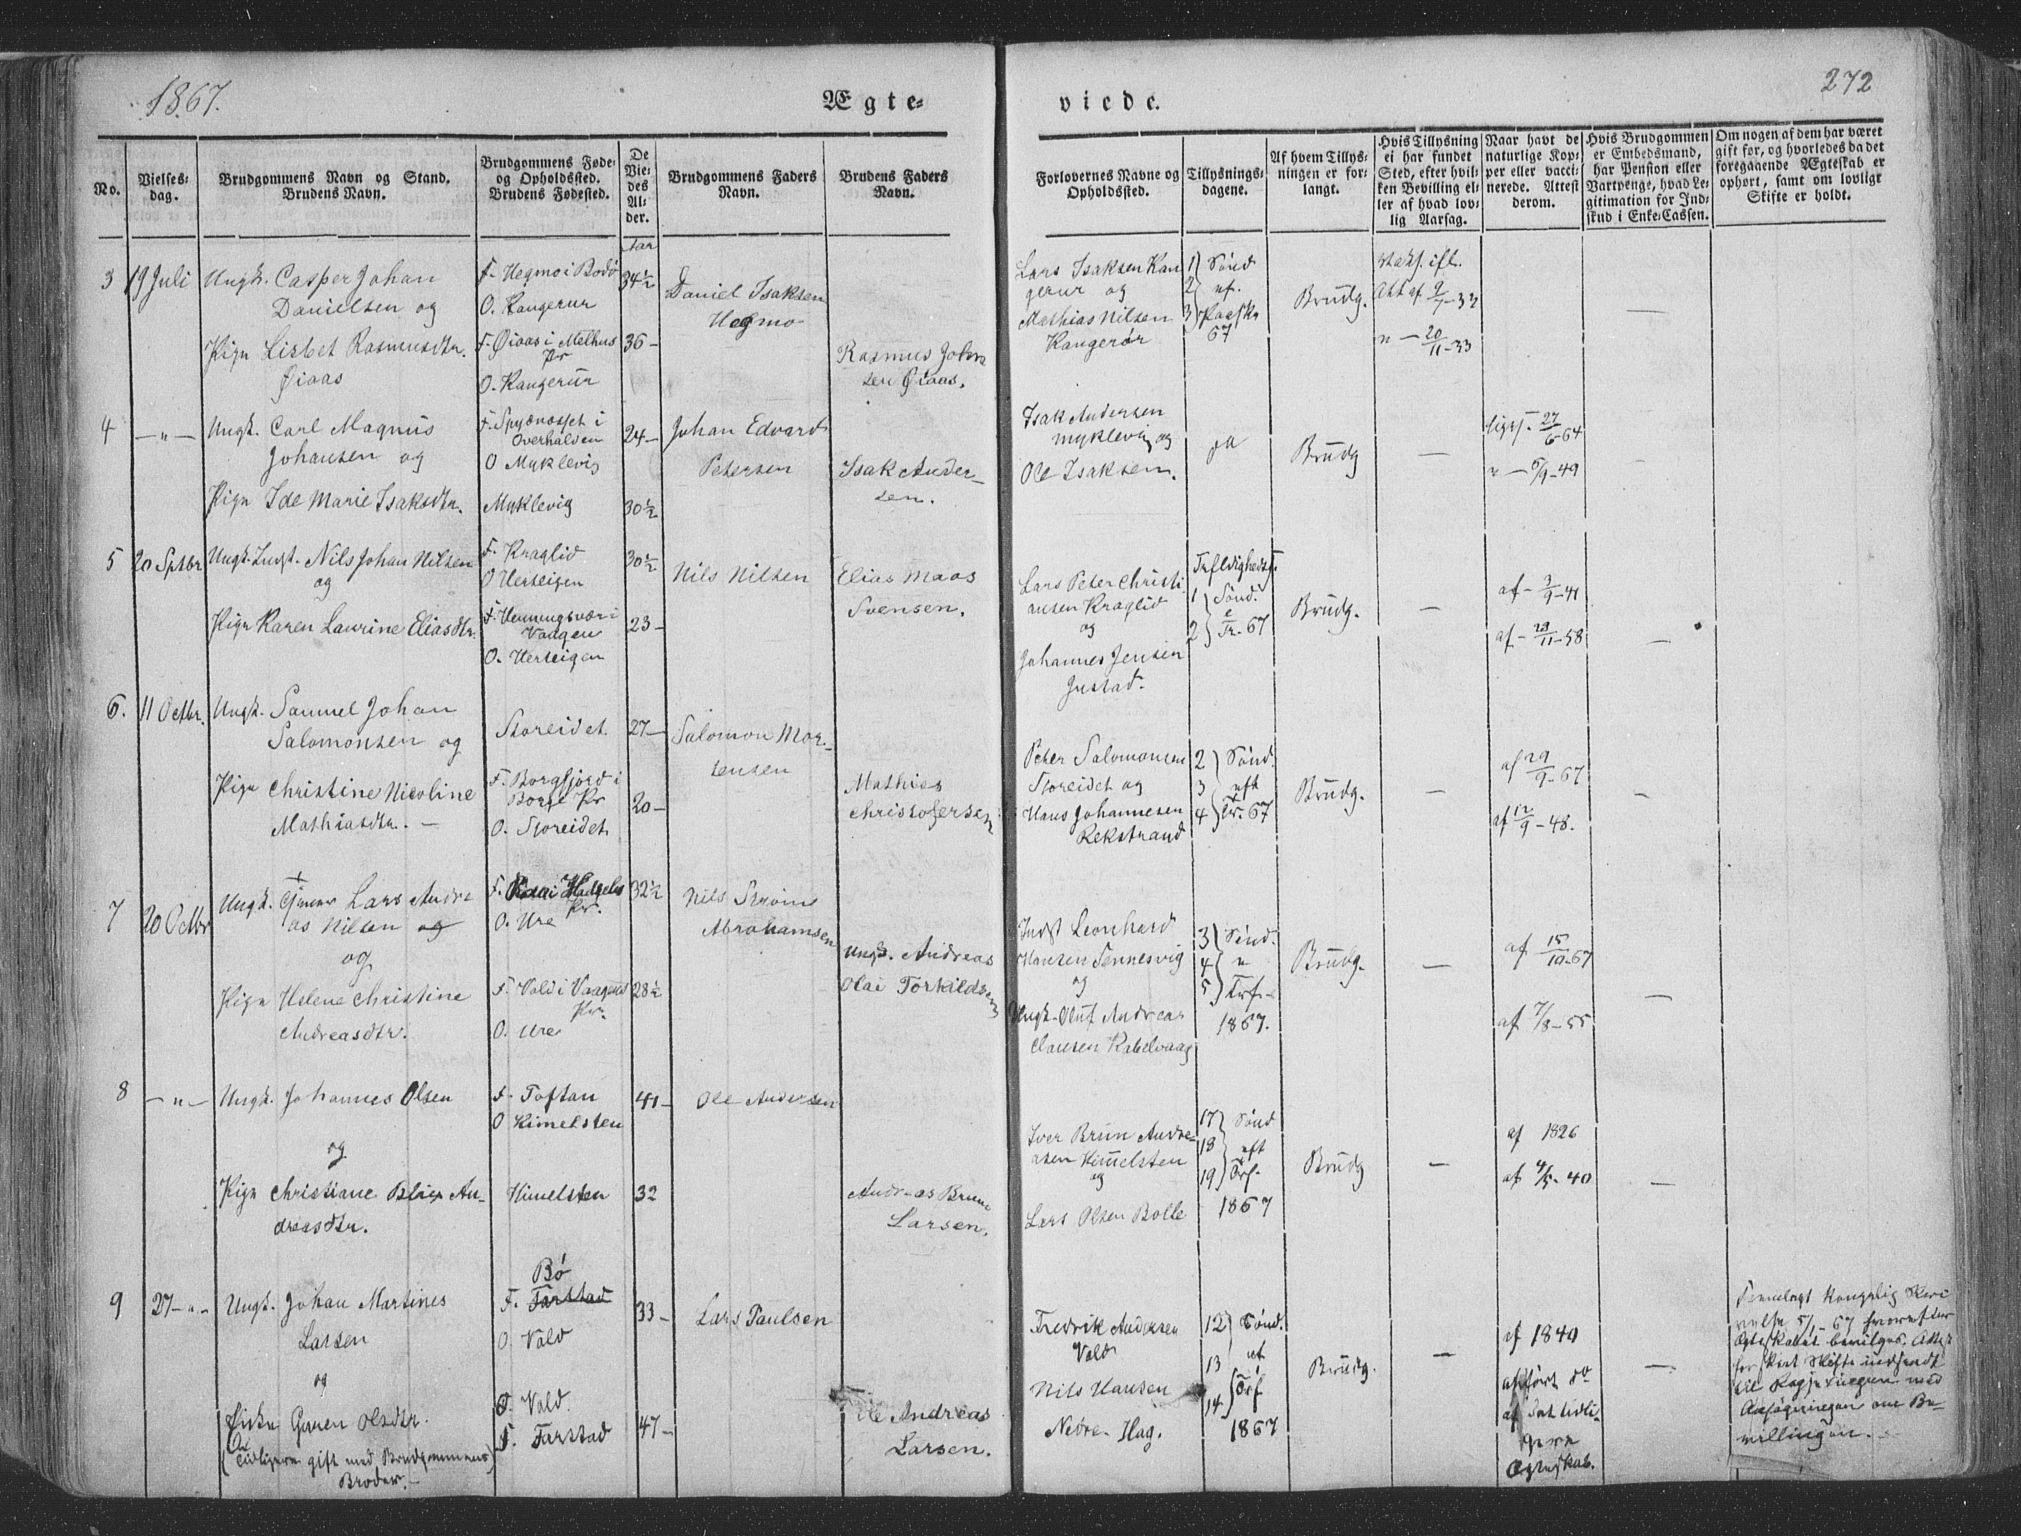 1867.
Ægte-
viede.
272
No.
Vielses-
dag.
Brudgommens Navn og Stand.
Brudens Navn.
Brudgommens Føde-
og Opholdssted.
Brudens Fødested.
De
Vie-
des
Al-
der.
Brudgommens Faders
Navn.
Brudens Faders
Navn.
Forlovernes Navne og
Opholdssted.
Tillysnings-
dagene.
Af hvem Tillys-
ningen er for-
langt.
Hvis Tillysning
ei har fundet
Sted, efter hvil-
ken Bevilling el-
ler af hvad lov-
lig Aarsag.
Naar havt de
naturlige Kop-
per eller vacci-
nerede. Attest
derom.
Hvis Brudgommen
er Embedsmand,
har Pension eller
Vartpenge, hvad Le-
gitimation for Ind-
skud i Enke-Cassen.
Om nogen af dem har været
gift før, og hvorledes da det
foregaaende Ægteskab er
ophørt, samt om lovligt
Skifte er holdt.
Aar
3
19 Juli
Ungk. Casper Johan
Danielsen og
Pige Lisbet Rasmusdtr.
Øiaas
F. Hegmo i Bodø
O. Kangerur
F. Øiaas i Melhus
Pr
O. Kangerur
34½
36-
Daniel Isaksen
Hegmo
Rasmus Johan
sen Øiaas.
Lars Isaksen Kan
gerur og
Mathias Nilsen
Kangerør
1 Sønd
2 ef.
3 Paaske
67
Brudg.
Att af 9/7-33
n - 20/11-33
4
-"-
Ungk. Carl Magnus
Johansen og
Pige Ide Marie Isaksdtr.
Overhalden
O Myklevig
Myklevig
24-
30½
Johan Edvard
Petersen
Isak Ander-
sen.
Isak Andersen
Myklevig og
Ole Isaksen.
Brudg
27/6-64
" - 5/9-49
5
20 Sptbr
Ungk. Indst. Nils Johan Nilsen
og
Pige Karen Laurine Eliasdtr.
F. Kraglid
O Herteigen
F. Henningsvær i
Vaagen
O. Herteigen
30½
23-
Nils Nilsen
Elias Maas
Svensen.
Lars Peter Christi
ansen Kraglid
og
Johannes Jensen
Justad.
1 Sønd.
2 Tr. 67
Brudg.
af - 3/9-41
af - 23/11-58
6.
11 Octbr.
Ungk. Samuel Johan
Salomonsen og
Pige Christine Nicoline
Mathiasdtr. -
Storeidet
F. Borgfjord i
Borge Pr
O. Storeidet
27-
20-
Salomon Mor-
tensen
Mathias
Christofersen
Peter Salomonsen
Storeidet og
Hans Johannesen
Rekstrand
2 Sønd.
3 eft
4 Tr. 67
Brudg.
af 29/9-67
af 12/9-48.
7
20 Octbr
Ungk. Lars Andre
as Nilsen og
og
Pige Helene Christine
Andreasdtr.
O. Ure
F. Vold i Vaagens
Pr.
O. Ure
32½
28½
Nils
Abrahamsen
Ungk. Andreas
Olai Torkildsen
Indst Leonhard
Hansen Sennesvig
og
Ungk. Oluf Andreas
Clausen Kabelvaag
3 Sønd.
4 "
5 Trf.
1867.
Brudg.
af 15/10-67
af 7/8-55
8
-"-
Ungk. Johannes Olsen
og
Pige Christiane Blix An-
dreasdtr.
F. Toftan
O Himelsten
Himelsten
41-
32
Ole Andersen
Andreas Brun
Larsen.
Iver Brun Andre-
asen Himelsten
og
Lars Olsen Bolle
17 Sønd
18 eft
19 Trf.
1867
Brudg
af 1826
af 4/5-40
9
27-"-
Ungk. Johan Martines
Larsen
og
Enke Gjøren Olsdtr.
(Tidligere gift med Brudgommens)
Broder. -
Bø
F. Farstad
O. Vold
O. Vold.
F. Farstad
33-
47-
Lars Paulsen
Ole Andreas
Larsen.
Fredrik Andersen
Vold
Nils Hansen
Nedre Hag.
12 Sønd.
13 eft
14 Trf
1867
Brudg.
af 1840
anført do
af det tidli-
gere
Ægteskab.
Fremlagt Kongelig Bevi
5/1-67 hvorefter
Ægteskabet bevilges.
Skifte indsendt
til Regjeringen med
Ansøgningen om Be-
villingen. -